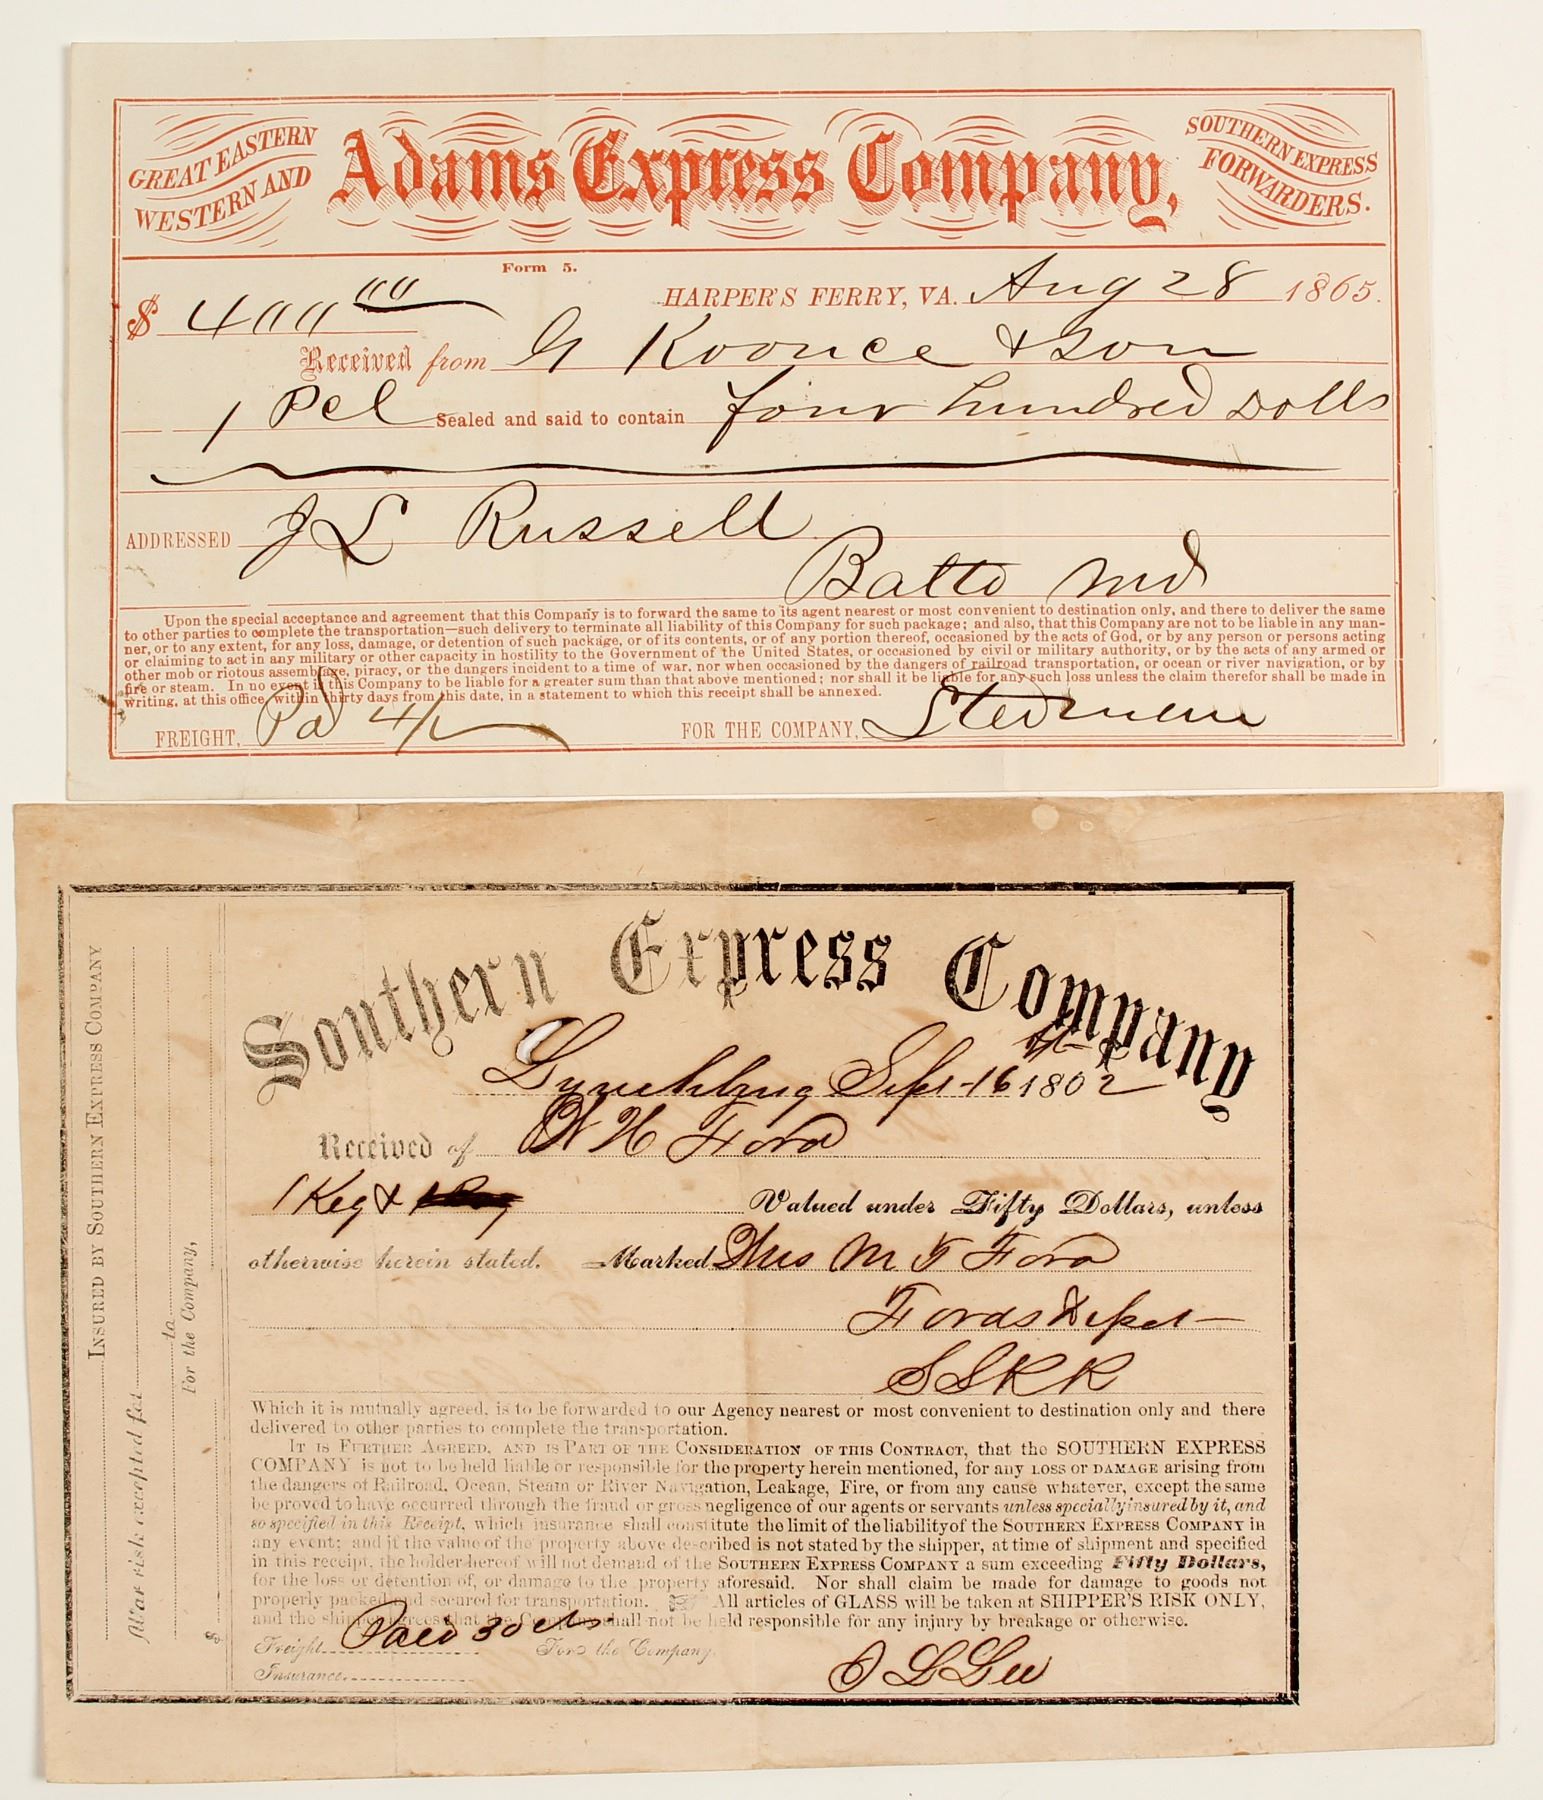 GREAT EASTERN
WESTERN AND
Adams Express Company,
SOUTHERN EXPRESS
FORWARDERS.
Form 5.
$ 400 00 HARPER'S FERRY, VA. Aug 28 1865.
Received from G Koonce & Son
1 Pcl Sealed and said to contain four hundred Dolls
ADDRESSED J L Russell
Balto Md
Upon the special acceptance and agreement that this Company is to forward the same to its agent nearest or most convenient to destination only, and there to deliver the same
to other parties to complete the transportation—such delivery to terminate all liability of this Company for such package; and also, that this Company are not to be liable in any man-
ner, or to any extent, for any loss, damage, or detention of such package, or of its contents, or of any portion thereof, occasioned by the acts of God, or by any person or persons acting
or claiming to act in any military or other capacity in hostility to the Government of the United States, or occasioned by civil or military authority, or by the acts of any armed or
other mob or riotous assemblage, piracy, or the dangers incident to a time of war, nor when occasioned by the dangers of railroad transportation, or ocean or river navigation, or by
fire or steam. In no event is this Company to be liable for a greater sum than that above mentioned; nor shall it be liable for any such loss unless the claim therefor shall be made in
writing, at this office, within thirty days from this date, in a statement to which this receipt shall be annexed.
FREIGHT, Pd 4/- FOR THE COMPANY, Stedman
Southern Express Company
Lynchburg Sept 16 1862
Received of W H Ford
1 Keg & Valued under Fifty Dollars, unless
otherwise herein stated. Marked Mrs M F Ford
Fords Depot
S S R R
Which it is mutually agreed, is to be forwarded to our Agency nearest or most convenient to destination only and there
delivered to other parties to complete the transportation.
IT IS FURTHER AGREED, AND IS PART OF THE CONSIDERATION OF THIS CONTRACT, that the SOUTHERN EXPRESS
COMPANY is not to be held liable or responsible for the property herein mentioned, for any LOSS OR DAMAGE arising from
the dangers of Railroad, Ocean, Steam or River Navigation, Leakage, Fire, or from any cause whatever, except the same
be proved to have occurred through the fraud or gross negligence of our agents or servants unless specially insured by it, and
so specified in this Receipt, which insurance shall constitute the limit of the liability of the SOUTHERN EXPRESS COMPANY in
any event; and if the value of the property above described is not stated by the shipper, at time of shipment and specified
in this receipt, the holder hereof will not demand of the SOUTHERN EXPRESS COMPANY a sum exceeding Fifty Dollars,
for the loss or detention of, or damage to the property aforesaid. Nor shall claim be made for damage to goods not
properly packed and secured for transportation. All articles of GLASS will be taken at SHIPPER'S RISK ONLY,
and the shipper agrees that the Company shall not be held responsible for any injury by breakage or otherwise.
Freight Paid 30 cts For the Company
Insurance O L Lee
INSURED BY SOUTHERN EXPRESS COMPANY
War risk excepted for
to
For the Company,
$